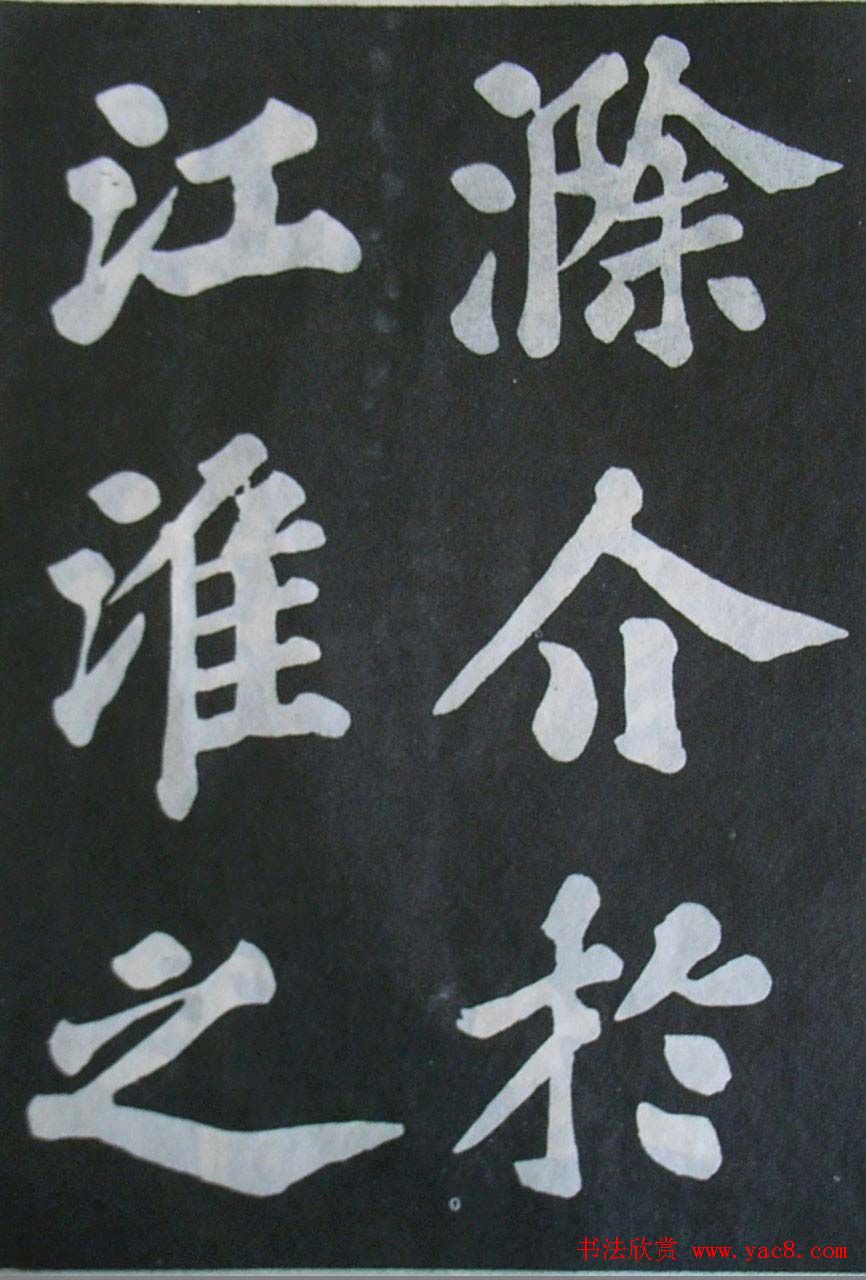 滁介於
江淮之
书法欣赏 www.yac8.com